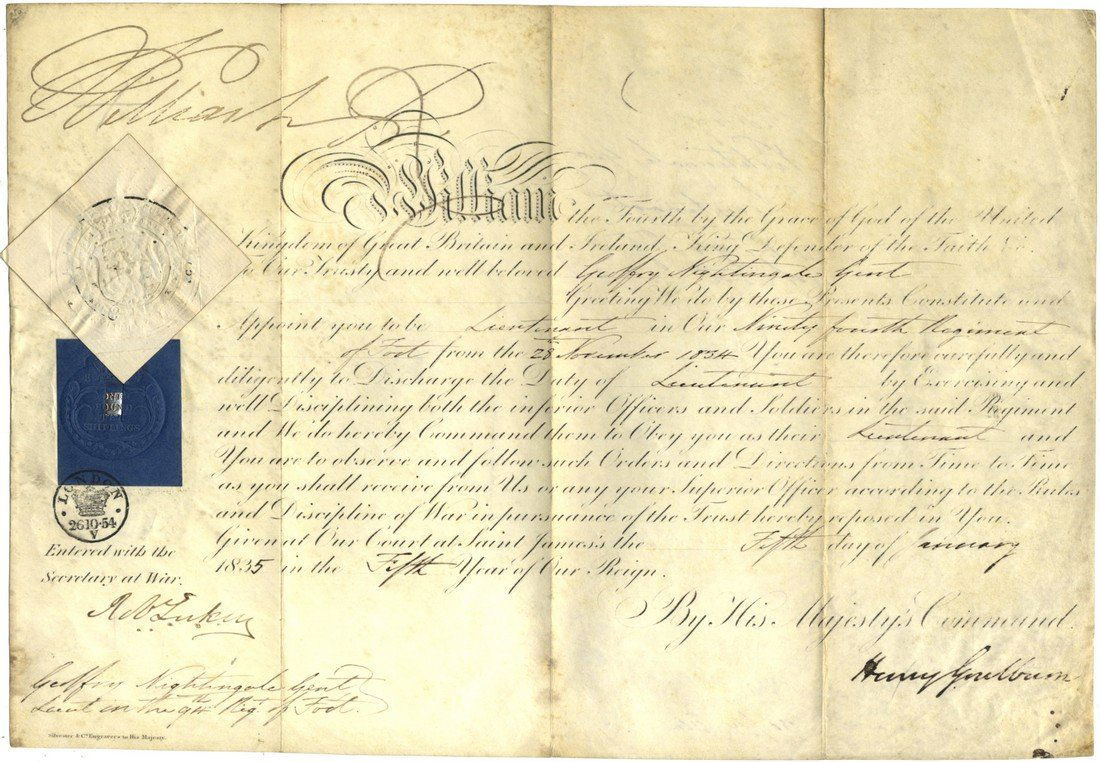 William R
William the Fourth by the Grace of God of the United
Kingdom of Great Britain and Ireland, King, Defender of the Faith &c.
To Our Trusty and well beloved Geoffry Nightingale Gent
Greeting We do by these Presents Constitute and
Appoint you to be Lieutenant in Our Ninety fourth Regiment
of Foot from the 28 November 1834 You are therefore carefully and
diligently to Discharge the Duty of Lieutenant by Exercising and
well Disciplining both the inferior Officers and Soldiers in the said Regiment
and We do hereby Command them to Obey you as their Lieutenant and
You are to observe and follow such Orders and Directions from Time to Time
as you shall receive from Us or any your Superior Officer according to the Rules
and Discipline of War in pursuance of the Trust hereby reposed in You.
Given at Our Court at Saint James's the Fifth day of January
1835 in the Fifth Year of Our Reign.
By His Majesty's Command.
Henry Goulburn
POUND
SHILLINGS
LONDON
26 10·54
V
Entered with the
Secretary at War.
Geoffry Nightingale Gent
Lieut in the 94 Reg. of Foot.
Silvester & Co. Engravers to His Majesty.